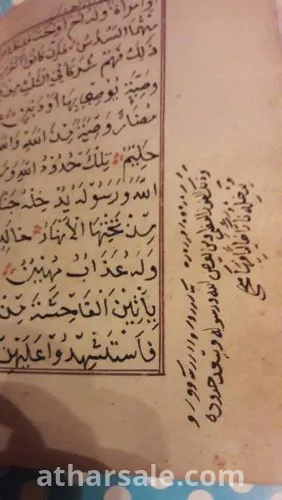 أَوِ امْرَأَةٌ وَلَهُ أَخٌ أَوْ أُخْتٌ
مِنْهُمَا السُّدُسُ فَإِنْ كَانُوا
ذَلِكَ فَهُمْ شُرَكَاءُ فِي الثُّلُثِ مِنْ
وَصِيَّةٍ يُوصَى بِهَا أَوْ دَيْنٍ
مُضَارٍّ وَصِيَّةً مِنَ اللهِ وَاللهُ
حَلِيمٌ تِلْكَ حُدُودُ اللهِ وَ
اللهَ وَرَسُولَهُ يُدْخِلْهُ جَنَّا
مِنْ تَحْتِهَا الْأَنْهَارُ خَالِدِ
وَلَهُ عَذَابٌ مُهِينٌ
يَأْتِينَ الْفَاحِشَةَ مِنْ
فَاسْتَشْهِدُوا عَلَيْهِنَّ
وذلك الفوز العظيم ومن يعص الله ورسوله ويتعد حدوده
يدخله نارا خالدا فيها صح
atharsale.com